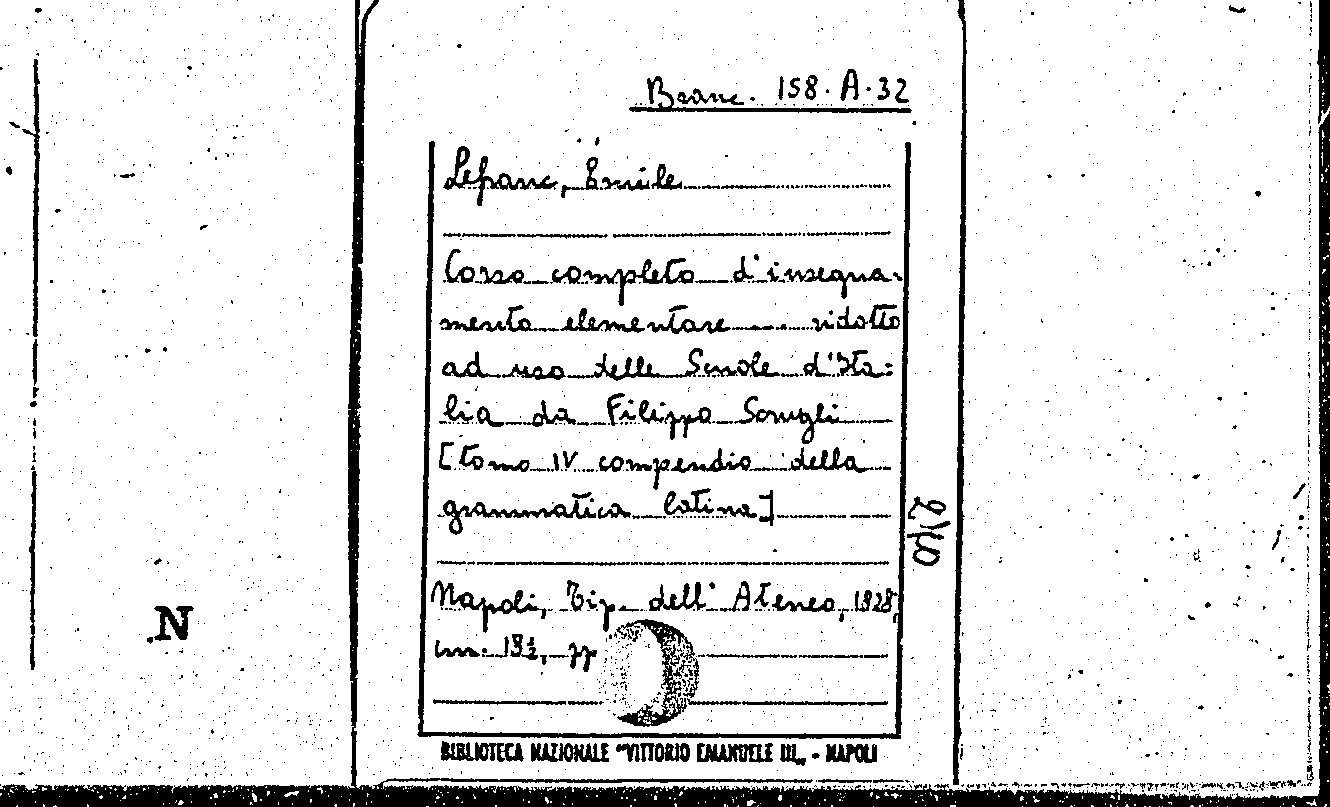 Branc. 158. A. 32
Lefranc, Émile
Corso completo d'insegna-
mento elementare .... ridotto
ad uso delle Scuole d'Ita=
lia da Filippo Scrugli
[tomo IV compendio della
grammatica latina]
Napoli, Tip. dell' Ateneo, 1828,
cm. 13½, pp
N
BIBLIOTECA NAZIONALE "VITTORIO EMANUELE III„ - NAPOLI